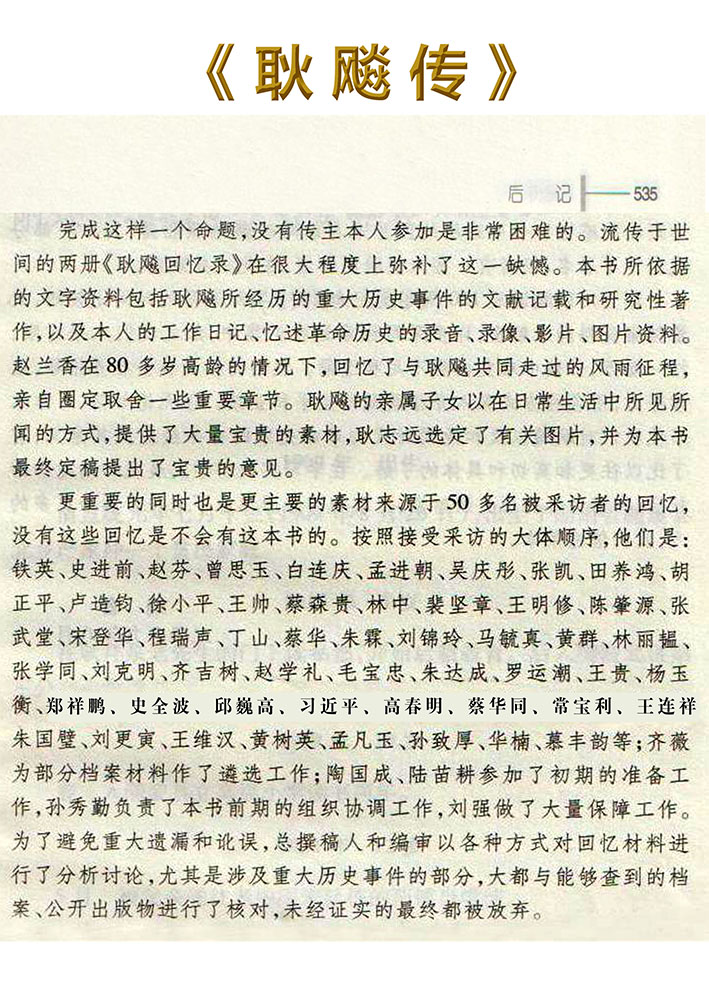 《耿飚传》
后 记 535
完成这样一个命题,没有传主本人参加是非常困难的。流传于世
间的两册《耿飚回忆录》在很大程度上弥补了这一缺憾。本书所依据
的文字资料包括耿飚所经历的重大历史事件的文献记载和研究性著
作,以及本人的工作日记、忆述革命历史的录音、录像、影片、图片资料。
赵兰香在80多岁高龄的情况下,回忆了与耿飚共同走过的风雨征程,
亲自圈定取舍一些重要章节。耿飚的亲属子女以在日常生活中所见所
闻的方式,提供了大量宝贵的素材,耿志远选定了有关图片,并为本书
最终定稿提出了宝贵的意见。
更重要的同时也是更主要的素材来源于50多名被采访者的回忆,
没有这些回忆是不会有这本书的。按照接受采访的大体顺序,他们是:
铁英、史进前、赵芬、曾思玉、白连庆、孟进朝、吴庆彤、张凯、田养鸿、胡
正平、卢造钧、徐小平、王帅、蔡森贵、林中、裴坚章、王明修、陈肇源、张
武堂、宋登华、程瑞声、丁山、蔡华、朱霖、刘锦玲、马毓真、黄群、林丽韫、
张学同、刘克明、齐吉树、赵学礼、毛宝忠、朱达成、罗运潮、王贵、杨玉
衡、郑祥鹏、史全波、邱巍高、习近平、高春明、蔡华同、常宝利、王连祥
朱国璧、刘更寅、王维汉、黄树英、孟凡玉、孙致厚、华楠、慕丰韵等;齐薇
为部分档案材料作了遴选工作;陶国成、陆苗耕参加了初期的准备工
作,孙秀勤负责了本书前期的组织协调工作,刘强做了大量保障工作。
为了避免重大遗漏和讹误,总撰稿人和编审以各种方式对回忆材料进
行了分析讨论,尤其是涉及重大历史事件的部分,大都与能够查到的档
案、公开出版物进行了核对,未经证实的最终都被放弃。